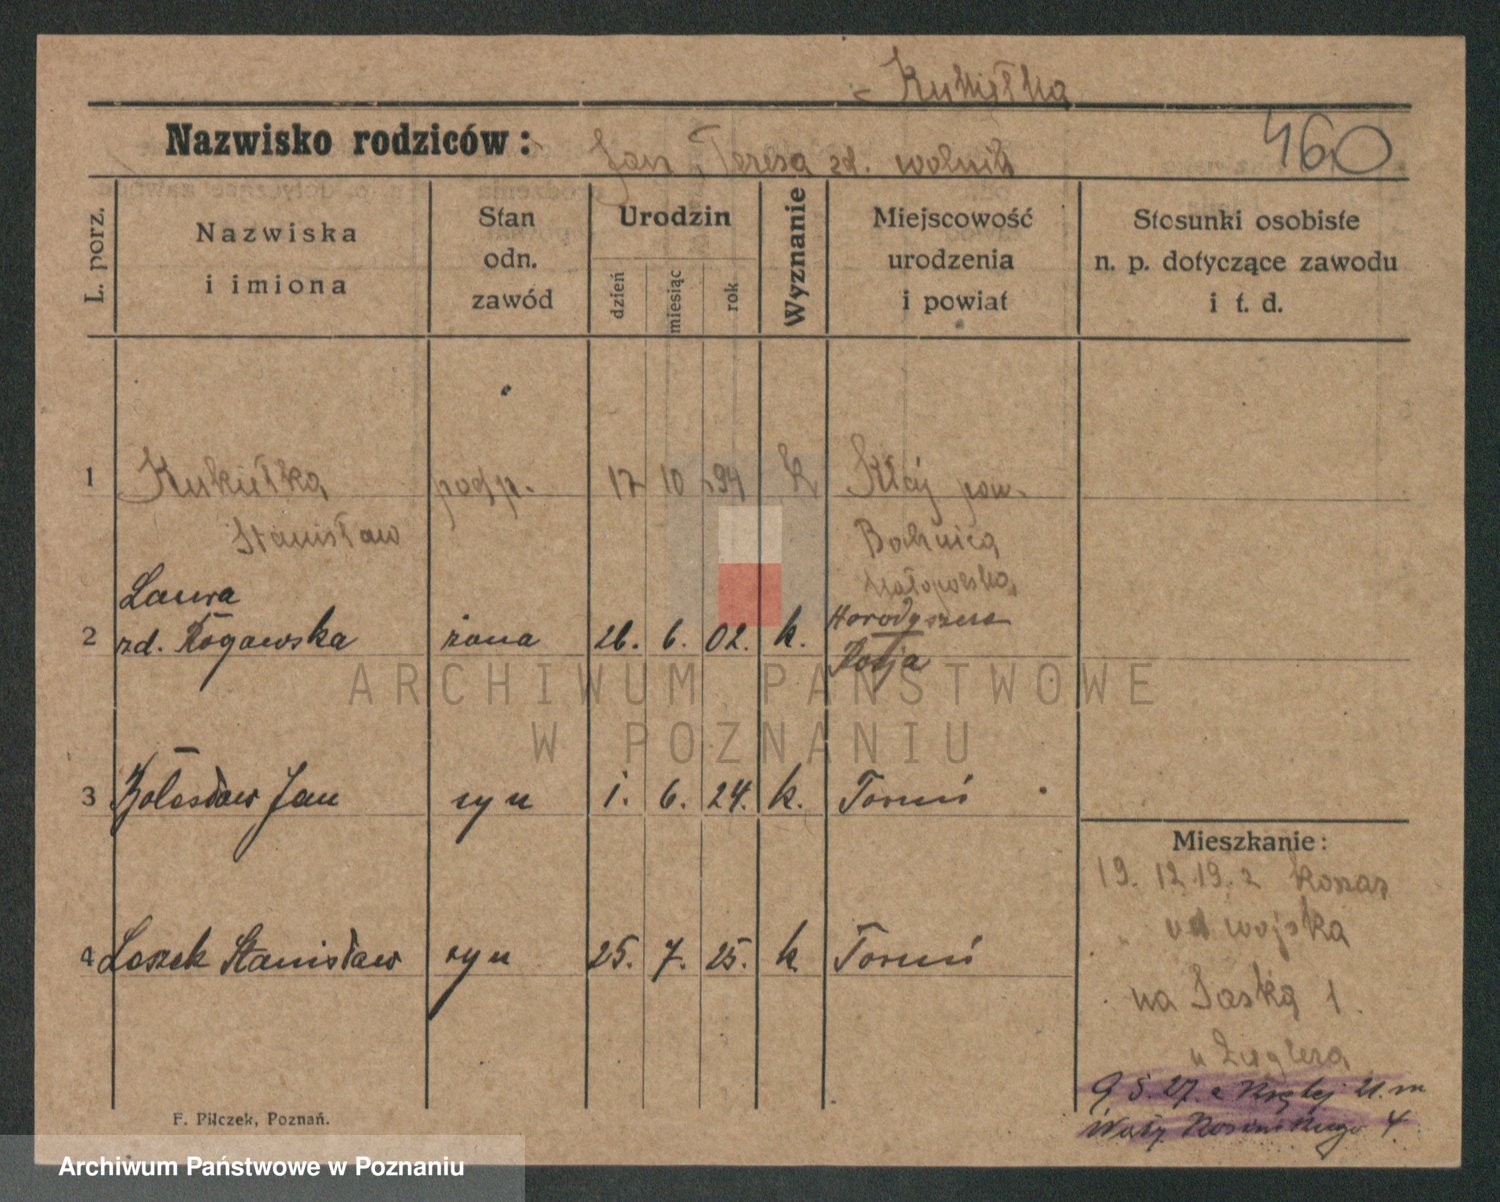 Kukiełka
Nazwisko rodziców: Jan, Teresa zd. wolnik
460
L. porz.
Nazwiska
i imiona
Stan
odn.
zawód
Urodzin
dzień
miesiąc
rok
Wyznanie
Miejscowość
urodzenia
i powiat
Stosunki osobiste
n. p. dotyczące zawodu
i t. d.
1 Kukiełka podp. 17 10 94 k Kłaj pow.
Stanisław Bochnica
Małopolska
2 Laura
zd. Rogawska żona 26. 6. 02. k.
Rosja
3 Bolesław Jan syn 1. 6. 24. k. Toruń
4 Leszek Stanisław syn 25. 7. 25. k Toruń
Mieszkanie:
19. 12 19. z koszar
od wojska
na Łaską 1.
u Zieglera
9 5. 27. 21. m
Wały 4
F. Pilczek, Poznań.
ARCHIWUM PAŃSTWOWE
W POZNANIU
Archiwum Państwowe w Poznaniu